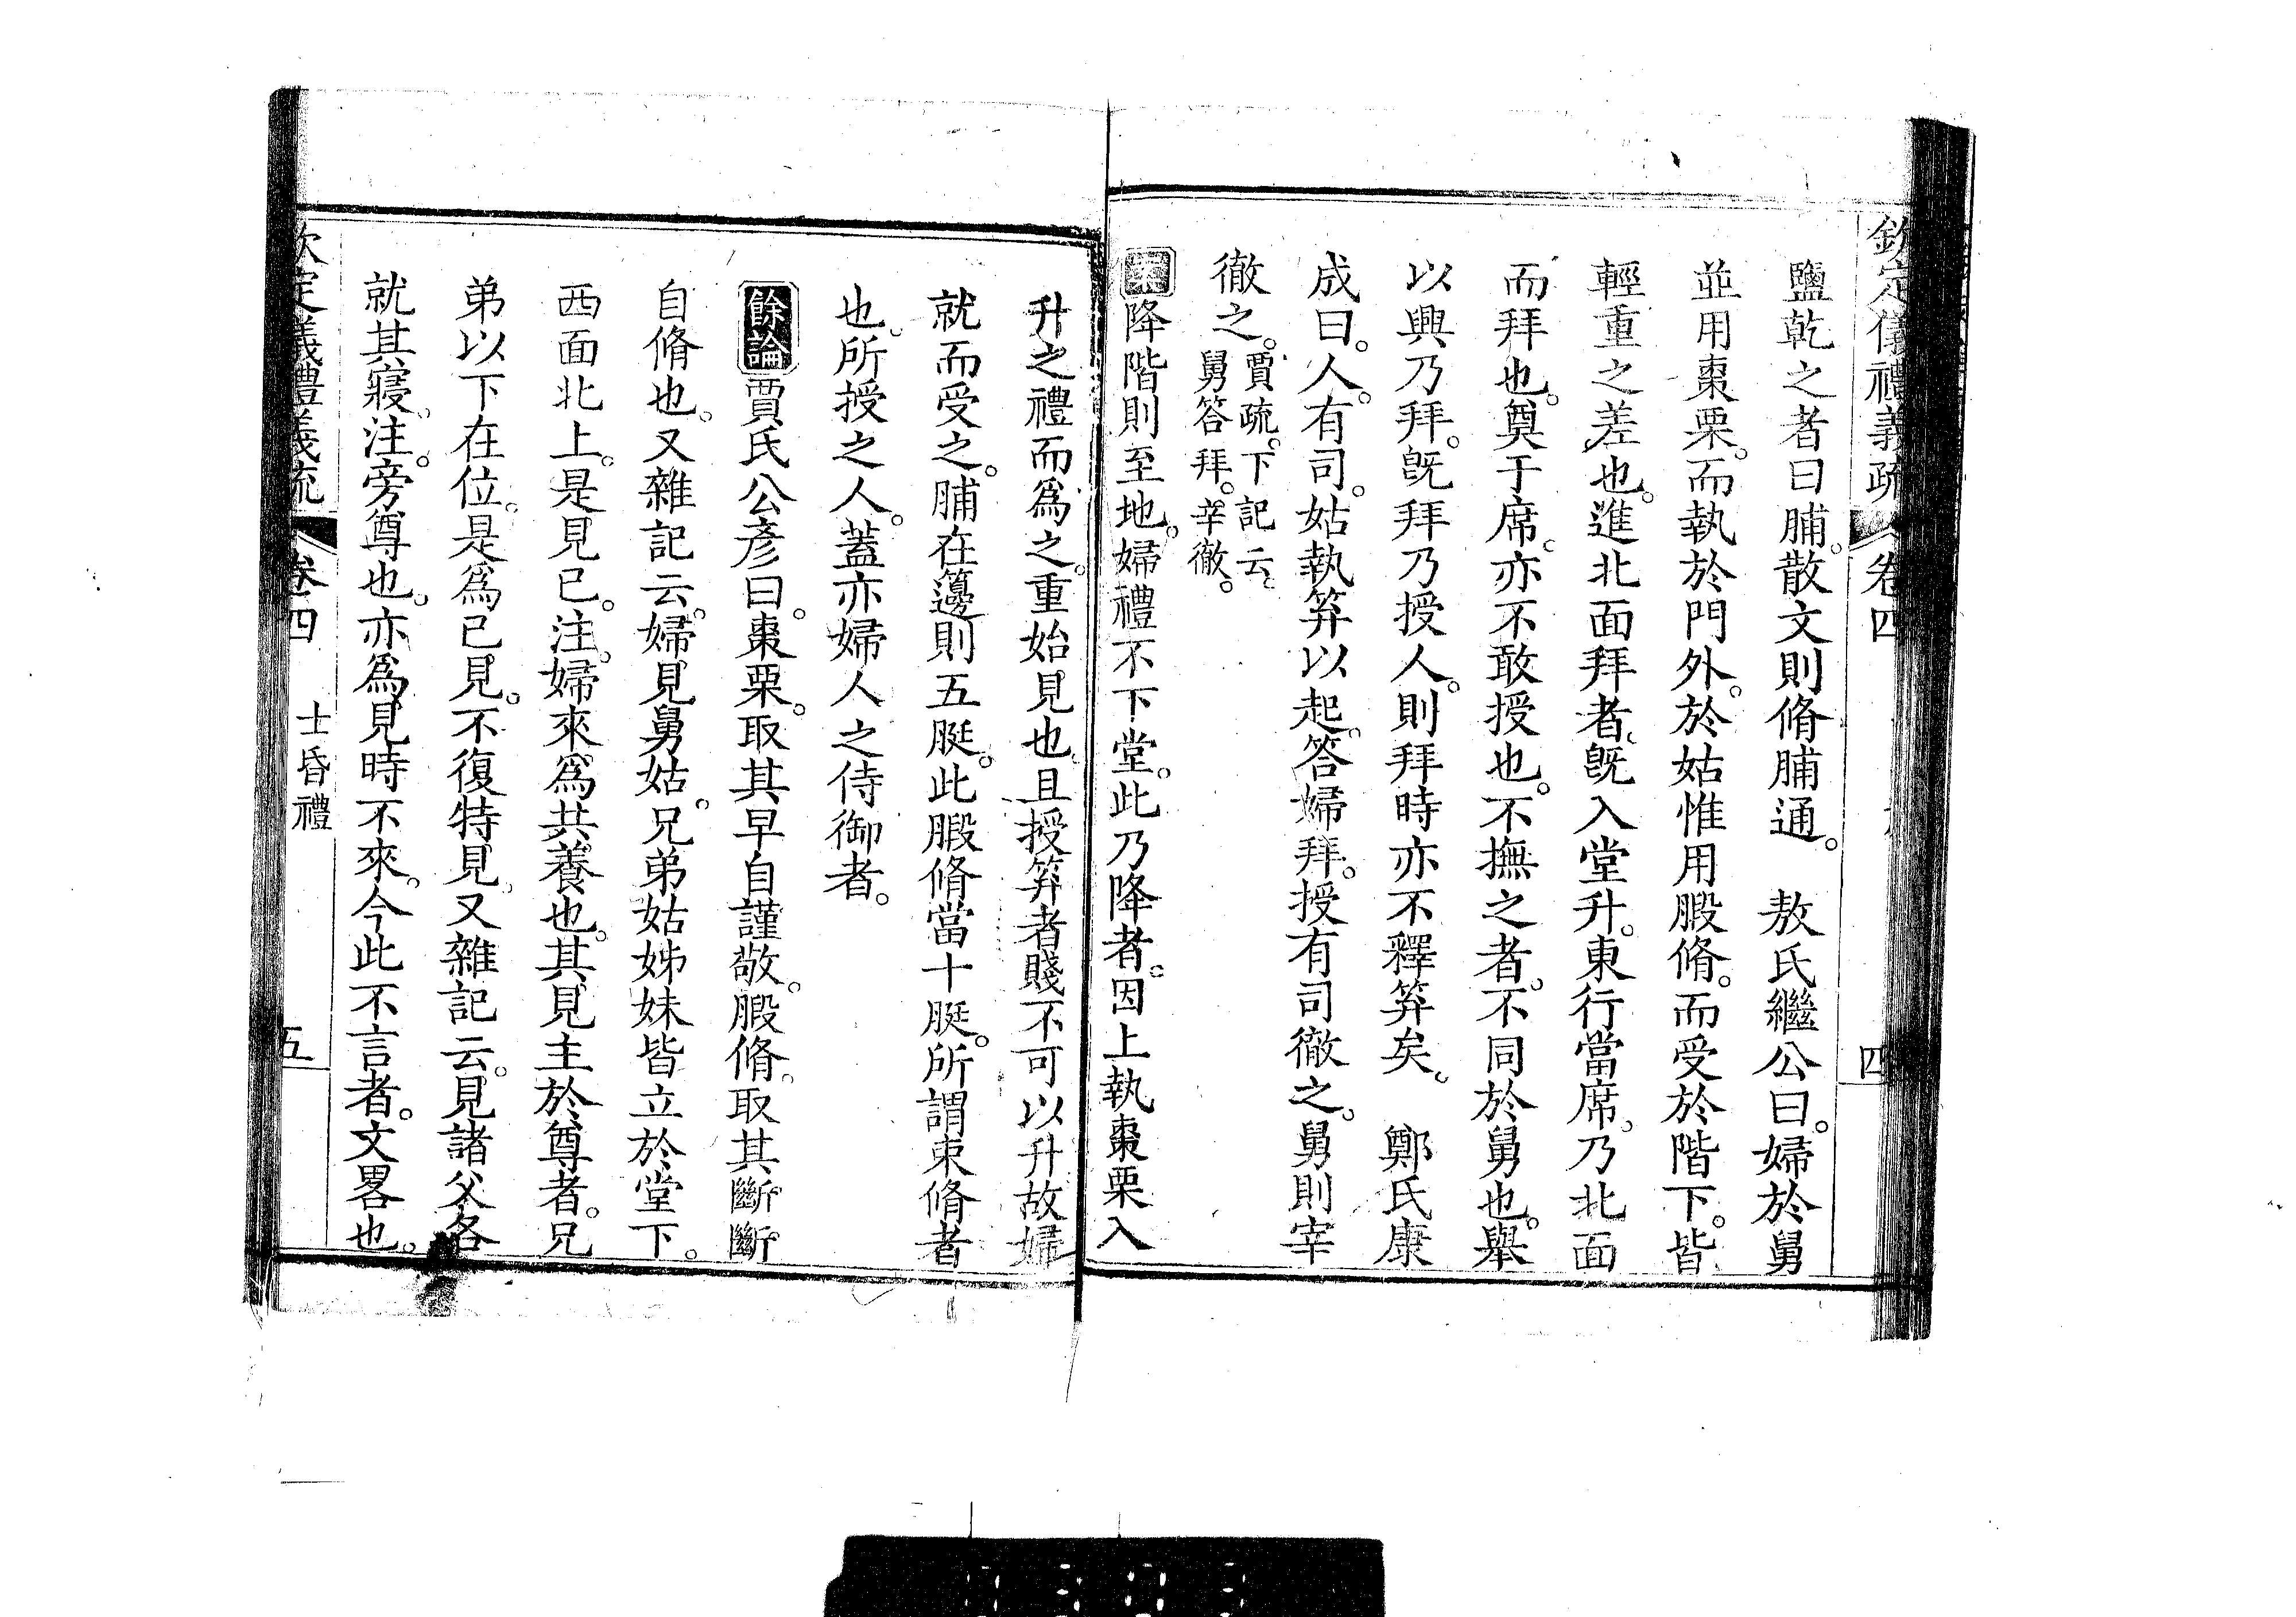 欽定儀禮義疏　卷四　四
鹽乾之者曰脯。散文則脩脯通。　敖氏繼公曰。婦於舅
並用棗栗。而執於門外。於姑惟用腶脩。而受於階下。皆
輕重之差也。進北面拜者。旣入堂升。東行當席。乃北面
而拜也。奠于席。亦不敢授也。不撫之者。不同於舅也。舉
以興乃拜。旣拜乃授人。則拜時亦不釋笲矣。　鄭氏康
成曰。人。有司。姑執笲以起。答婦拜。授有司徹之。舅則宰
徹之。賈疏。下記云。舅答拜。宰徹。
案降階則至地。婦禮不下堂。此乃降者。因上執棗栗入
升之禮而爲之。重始見也。且授笲者賤不可以升故婦
就而受之。脯在籩則五脡。此腶脩當十脡。所謂束脩者
也。所授之人。蓋亦婦人之侍御者。
餘論賈氏公彥曰。棗栗。取其早自謹敬。腶脩。取其斷斷
自脩也。又雜記云。婦見舅姑。兄弟姑姊妹皆立於堂下。
西面北上。是見已。注。婦來爲共養也。其見主於尊者。兄
弟以下在位。是爲已見。不復特見。又雜記云。見諸父各
就其寢。注。旁尊也。亦爲見時不來。今此不言者。文畧也。
欽定儀禮義疏　卷四　士昏禮　五